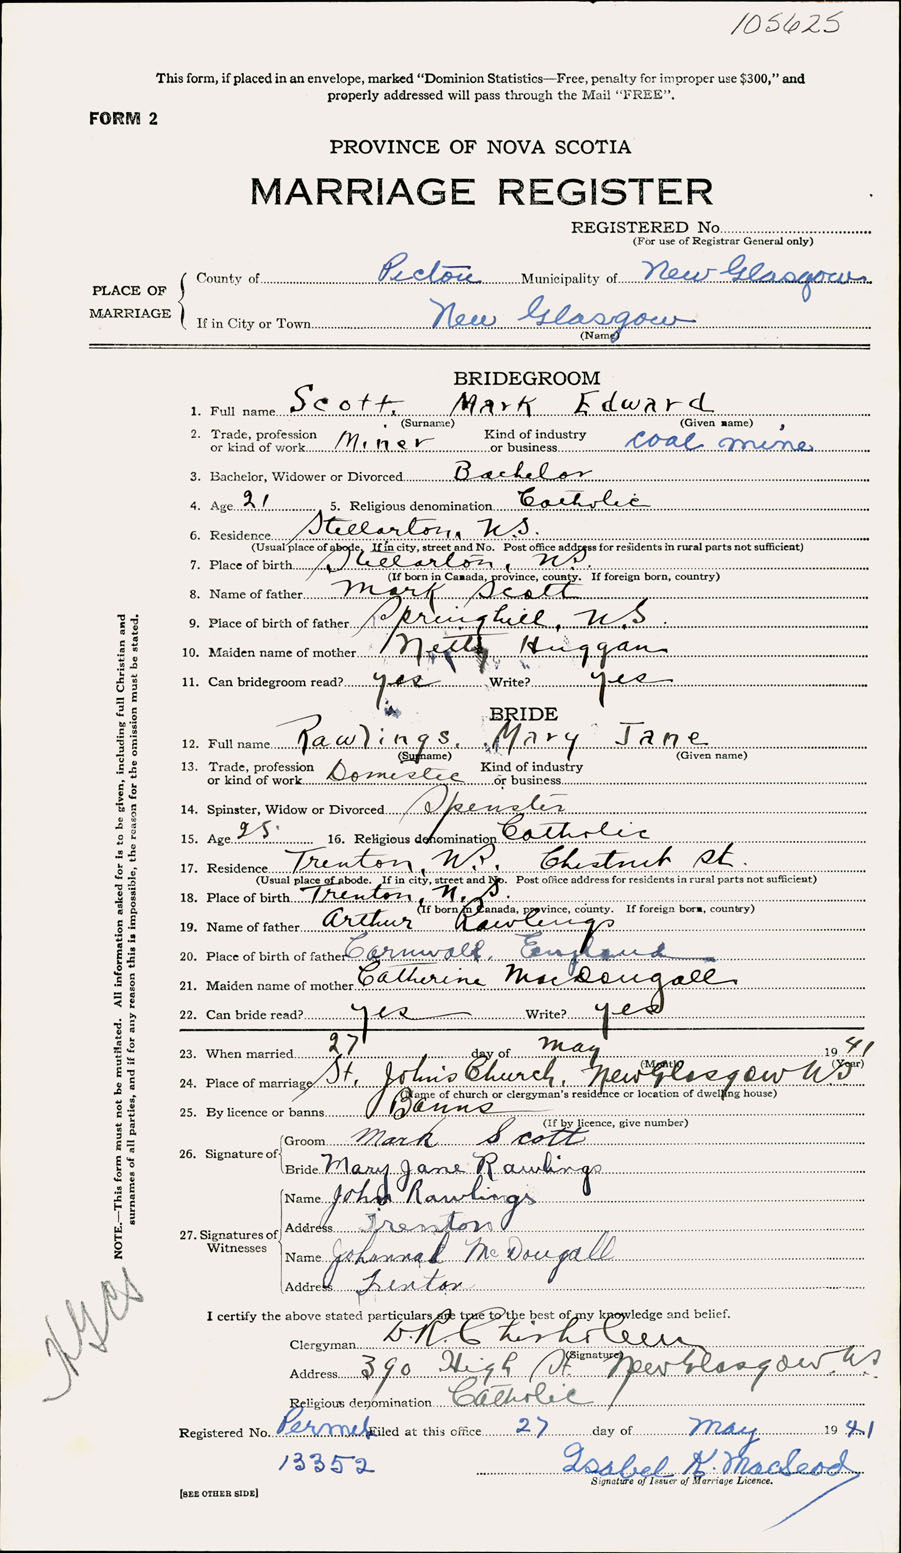 105625
This form, if placed in an envelope, marked "Dominion Statistics—Free, penalty for improper use $300," and
properly addressed will pass through the Mail "FREE".
FORM 2
PROVINCE OF NOVA SCOTIA
MARRIAGE REGISTER
REGISTERED No.
(For use of Registrar General only)
PLACE OF MARRIAGE
County of Pictou Municipality of New Glasgow
If in City or Town New Glasgow
(Name)
BRIDEGROOM
1. Full name Scott, Mark Edward
(Surname) (Given name)
2. Trade, profession or kind of work Miner Kind of industry or business coal mine
3. Bachelor, Widower or Divorced Bachelor
4. Age 21 5. Religious denomination Catholic
6. Residence Stellarton, N.S.
(Usual place of abode. If in city, street and No. Post office address for residents in rural parts not sufficient)
7. Place of birth Stellarton, N.S.
(If born in Canada, province, county. If foreign born, country)
8. Name of father Mark Scott
9. Place of birth of father Springhill, N.S.
10. Maiden name of mother Netty Huggan
11. Can bridegroom read? yes Write? yes
BRIDE
12. Full name Rawlings, Mary Jane
(Surname) (Given name)
13. Trade, profession or kind of work Domestic Kind of industry or business
14. Spinster, Widow or Divorced Spenster
15. Age 25 16. Religious denomination Catholic
17. Residence Trenton, N.S. Chestnut St.
(Usual place of abode. If in city, street and No. Post office address for residents in rural parts not sufficient)
18. Place of birth Trenton, N.S.
(If born in Canada, province, county. If foreign born, country)
19. Name of father Arthur Rawlings
20. Place of birth of father Cornwall, England
21. Maiden name of mother Catherine MacDougall
22. Can bride read? yes Write? yes
23. When married 27 day of May 1941
(Month) (Year)
24. Place of marriage St. John's Church, New Glasgow NS
(Name of church or clergyman's residence or location of dwelling house)
25. By licence or banns Banns
(If by licence, give number)
26. Signature of
Groom Mark Scott
Bride Mary Jane Rawlings
27. Signatures of Witnesses
Name John Rawlings
Address Trenton
Name Johannah McDougall
Address Trenton
I certify the above stated particulars are true to the best of my knowledge and belief.
Clergyman D.R. Chisholm
(Signature)
Address 390 High St. New Glasgow. NS
Religious denomination Catholic
Registered No. Permit Filed at this office 27 day of May 1941
13352 Isabel K. MacLeod
Signature of Issuer of Marriage Licence.
[SEE OTHER SIDE]
NOTE.—This form must not be mutilated. All information asked for is to be given, including full Christian and
surnames of all parties, and if for any reason this is impossible, the reason for the omission must be stated.